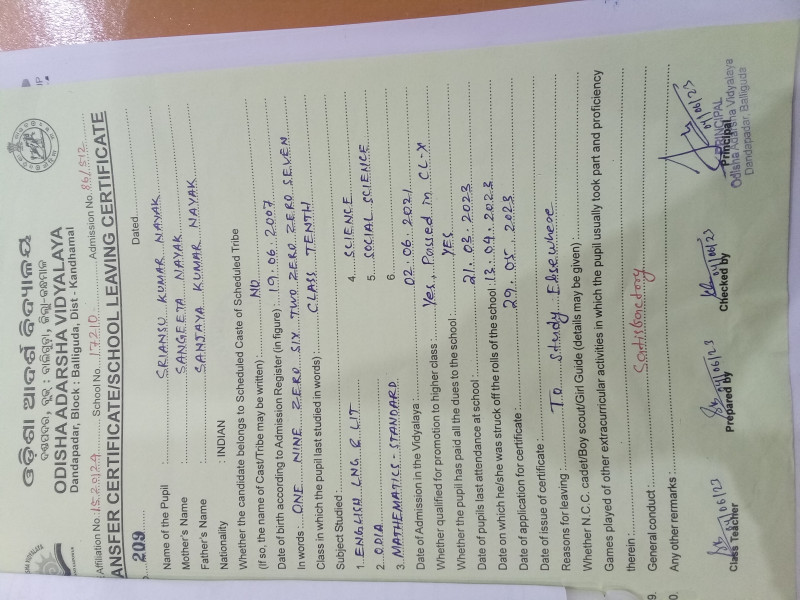 ଓଡ଼ିଶା ଆଦର୍ଶ ବିଦ୍ୟାଳୟ
ODISHA ADARSHA VIDYALAYA
Dandapadar, Block : Balliguda, Dist - Kandhamal
Affiliation No. 1520124 School No. 17210 Admission No. 86/512
ANSFER CERTIFICATE/SCHOOL LEAVING CERTIFICATE
209 Dated
Name of the Pupil : SRIANSU KUMAR NAYAK
Mother's Name : SANGEETA NAYAK
Father's Name : SANJAYA KUMAR NAYAK
Nationality : INDIAN
Whether the candidate belongs to Scheduled Caste of Scheduled Tribe
(If so, the name of Cast/Tribe may be written) : NO
Date of birth according to Admission Register (in figure) : 19.06.2007
In words : ONE NINE ZERO SIX TWO ZERO ZERO SEVEN
Class in which the pupil last studied in words) : CLASS TENTH
Subject Studied :
1. ENGLISH LNG & LIT 4. SCIENCE
2. ODIA 5. SOCIAL SCIENCE
3. MATHEMATICS - STANDARD 6.
Date of Admission in the Vidyalaya : 02.06.2021
Whether qualified for promotion to higher class : Yes, Passed in CL-X
Whether the pupil has paid all the dues to the school : YES
Date of pupils last attendance at school : 21.03.2023
Date on which he/she was struck off the rolls of the school : 13.04.2023
Date of application for certificate : 29.05.2023
Date of issue of certificate :
Reasons for leaving : To study Elsewhere
Whether N.C.C. cadet/Boy scout/Girl Guide (details may be given) :
Games played of other extracurricular activities in which the pupil usually took part and proficiency
therein :
9. General conduct : Satisfactory
0. Any other remarks :
04/06/23
Class Teacher Prepared by Checked by Principal
PRINCIPAL
Odisha Adarsha Vidyalaya
Dandapadar, Balliguda